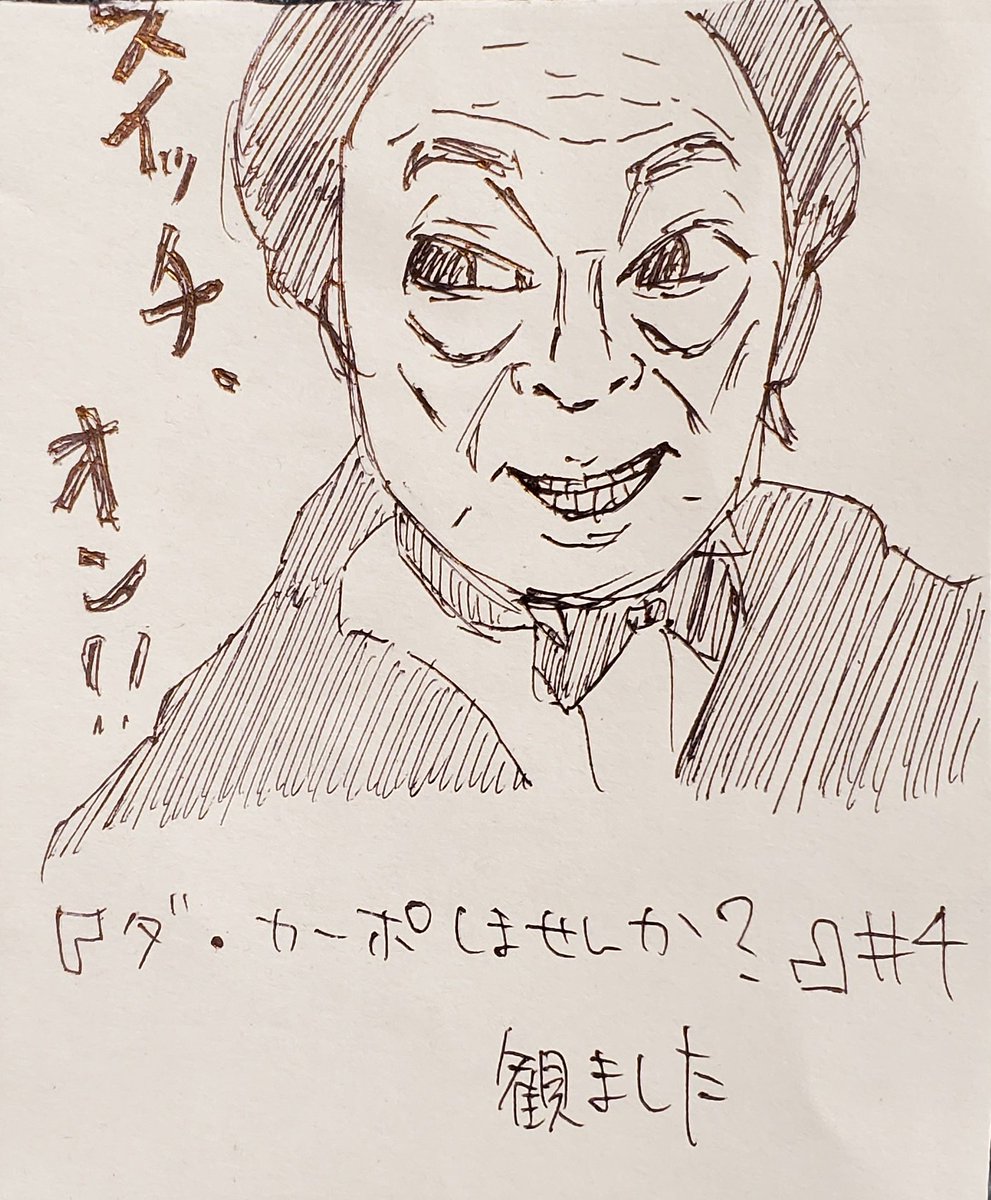 スイッチ・
オン!!
『ダ・カーポしませんか?』#4
観ました